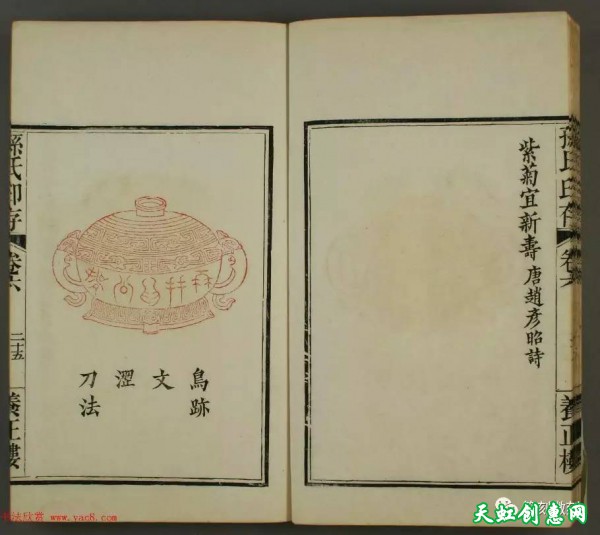 紫菊宜新壽 唐趙彥昭詩
孫氏印存
卷六
養正樓
鳥跡
文
澀
刀法
孫氏印存
卷六
二十五
養正樓
法欣赏 www.yac8.com
天虹创意网